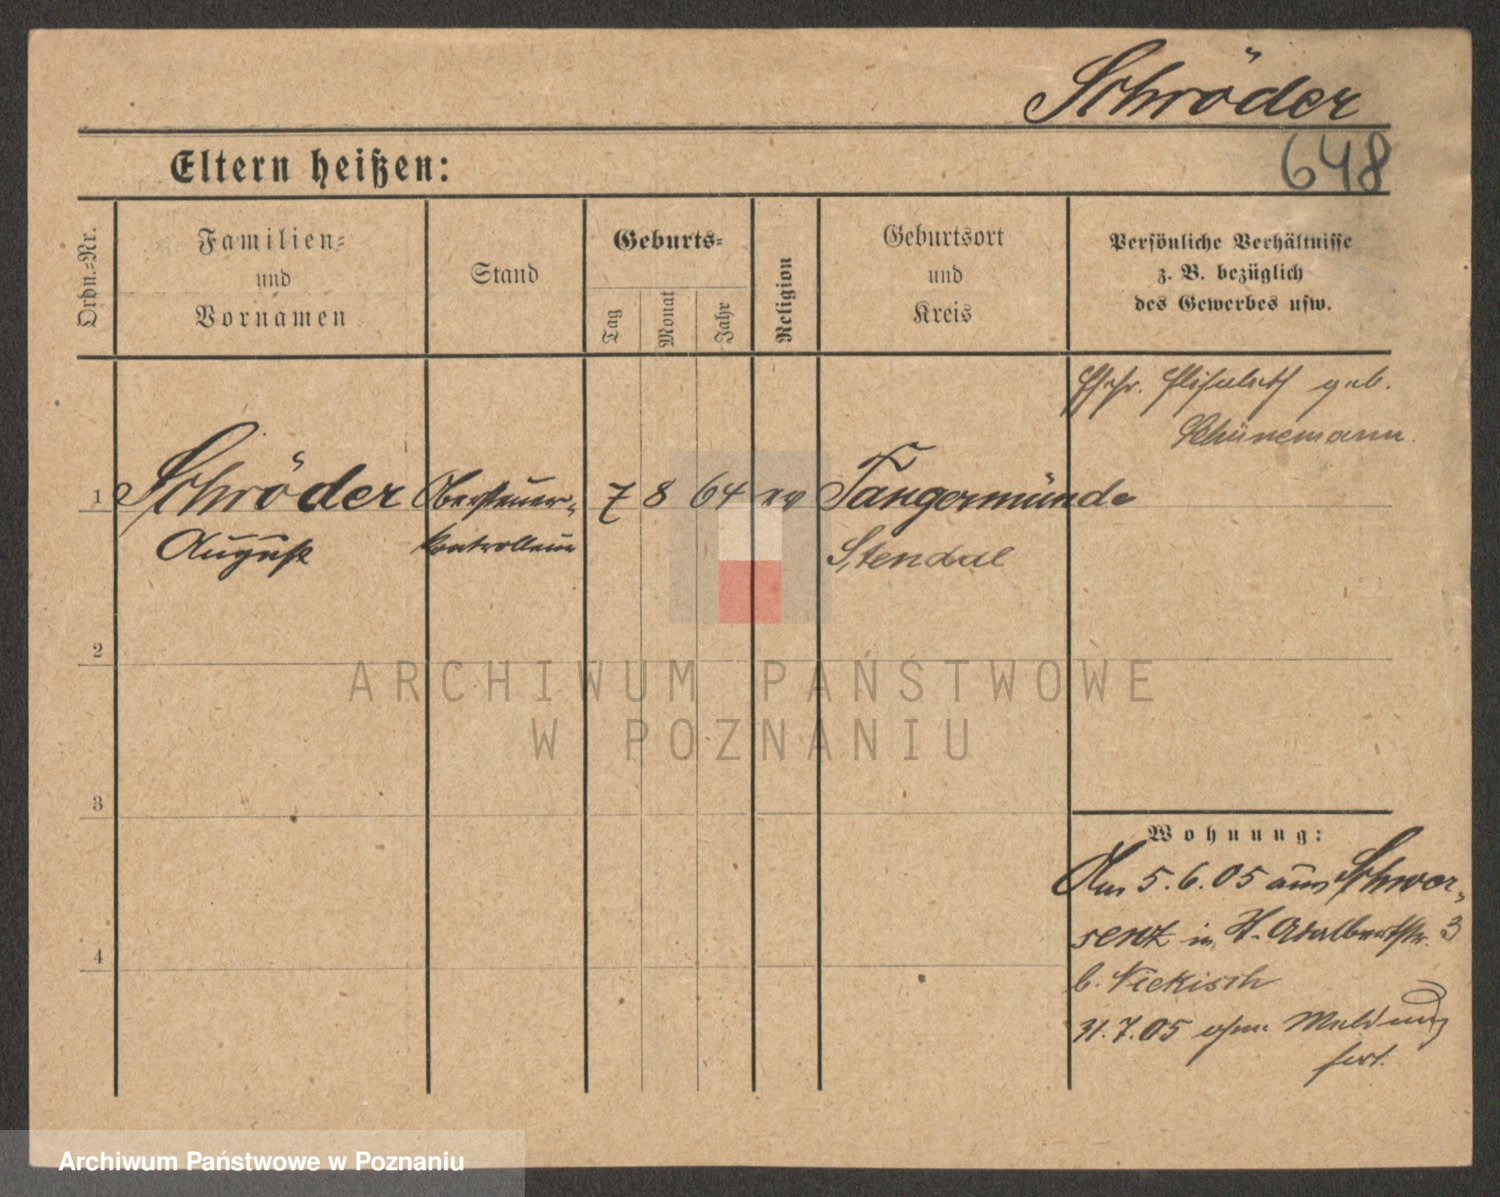 Schröder
Eltern heißen:
648
Ordn.=Nr.
Familien=
und
Vornamen
Stand
Geburts=
Tag
Monat
Jahr
Religion
Geburtsort
und
Kreis
Persönliche Verhältnisse
z. B. bezüglich
des Gewerbes usw.
Ehefr. Elisabeth geb.
Schünemann.
1 Schröder Obersteuer= 7 8 64 ev Tangermünde
August kontrolleur Stendal
2
ARCHIWUM PAŃSTWOWE
W POZNANIU
3
Wohnung:
Am 5.6.05 aus Schwer=
senz in H. Adalbertstr. 3
4
b. Niekisch
31.7.05 ohne Meldung
fort.
Archiwum Państwowe w Poznaniu